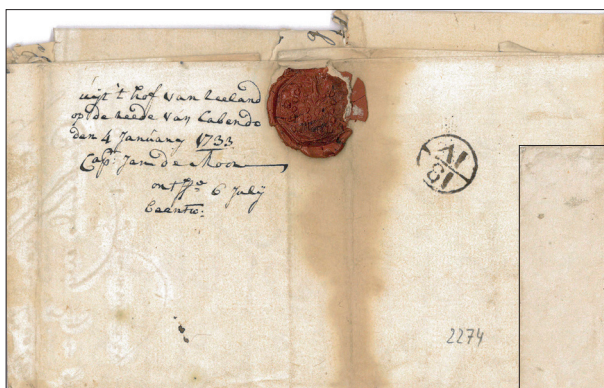 uijt 't hof van Zeeland
op de reede van Cabendo
den 4 Januarij 1733
Cap: Jan de Moor
ontf 6 Julij
2274